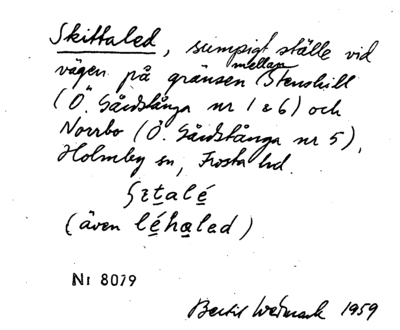 Skittaled, sumpigt ställe vid
vägen på gränsen mellan Stenshill
(Ö. Gårdstånga nr 1 & 6) och
Norrbo (Ö. Gårdstånga nr 5),
Holmby sn, Frosta hd.
(även léhaled)
Nr 8079
Bertil 1959